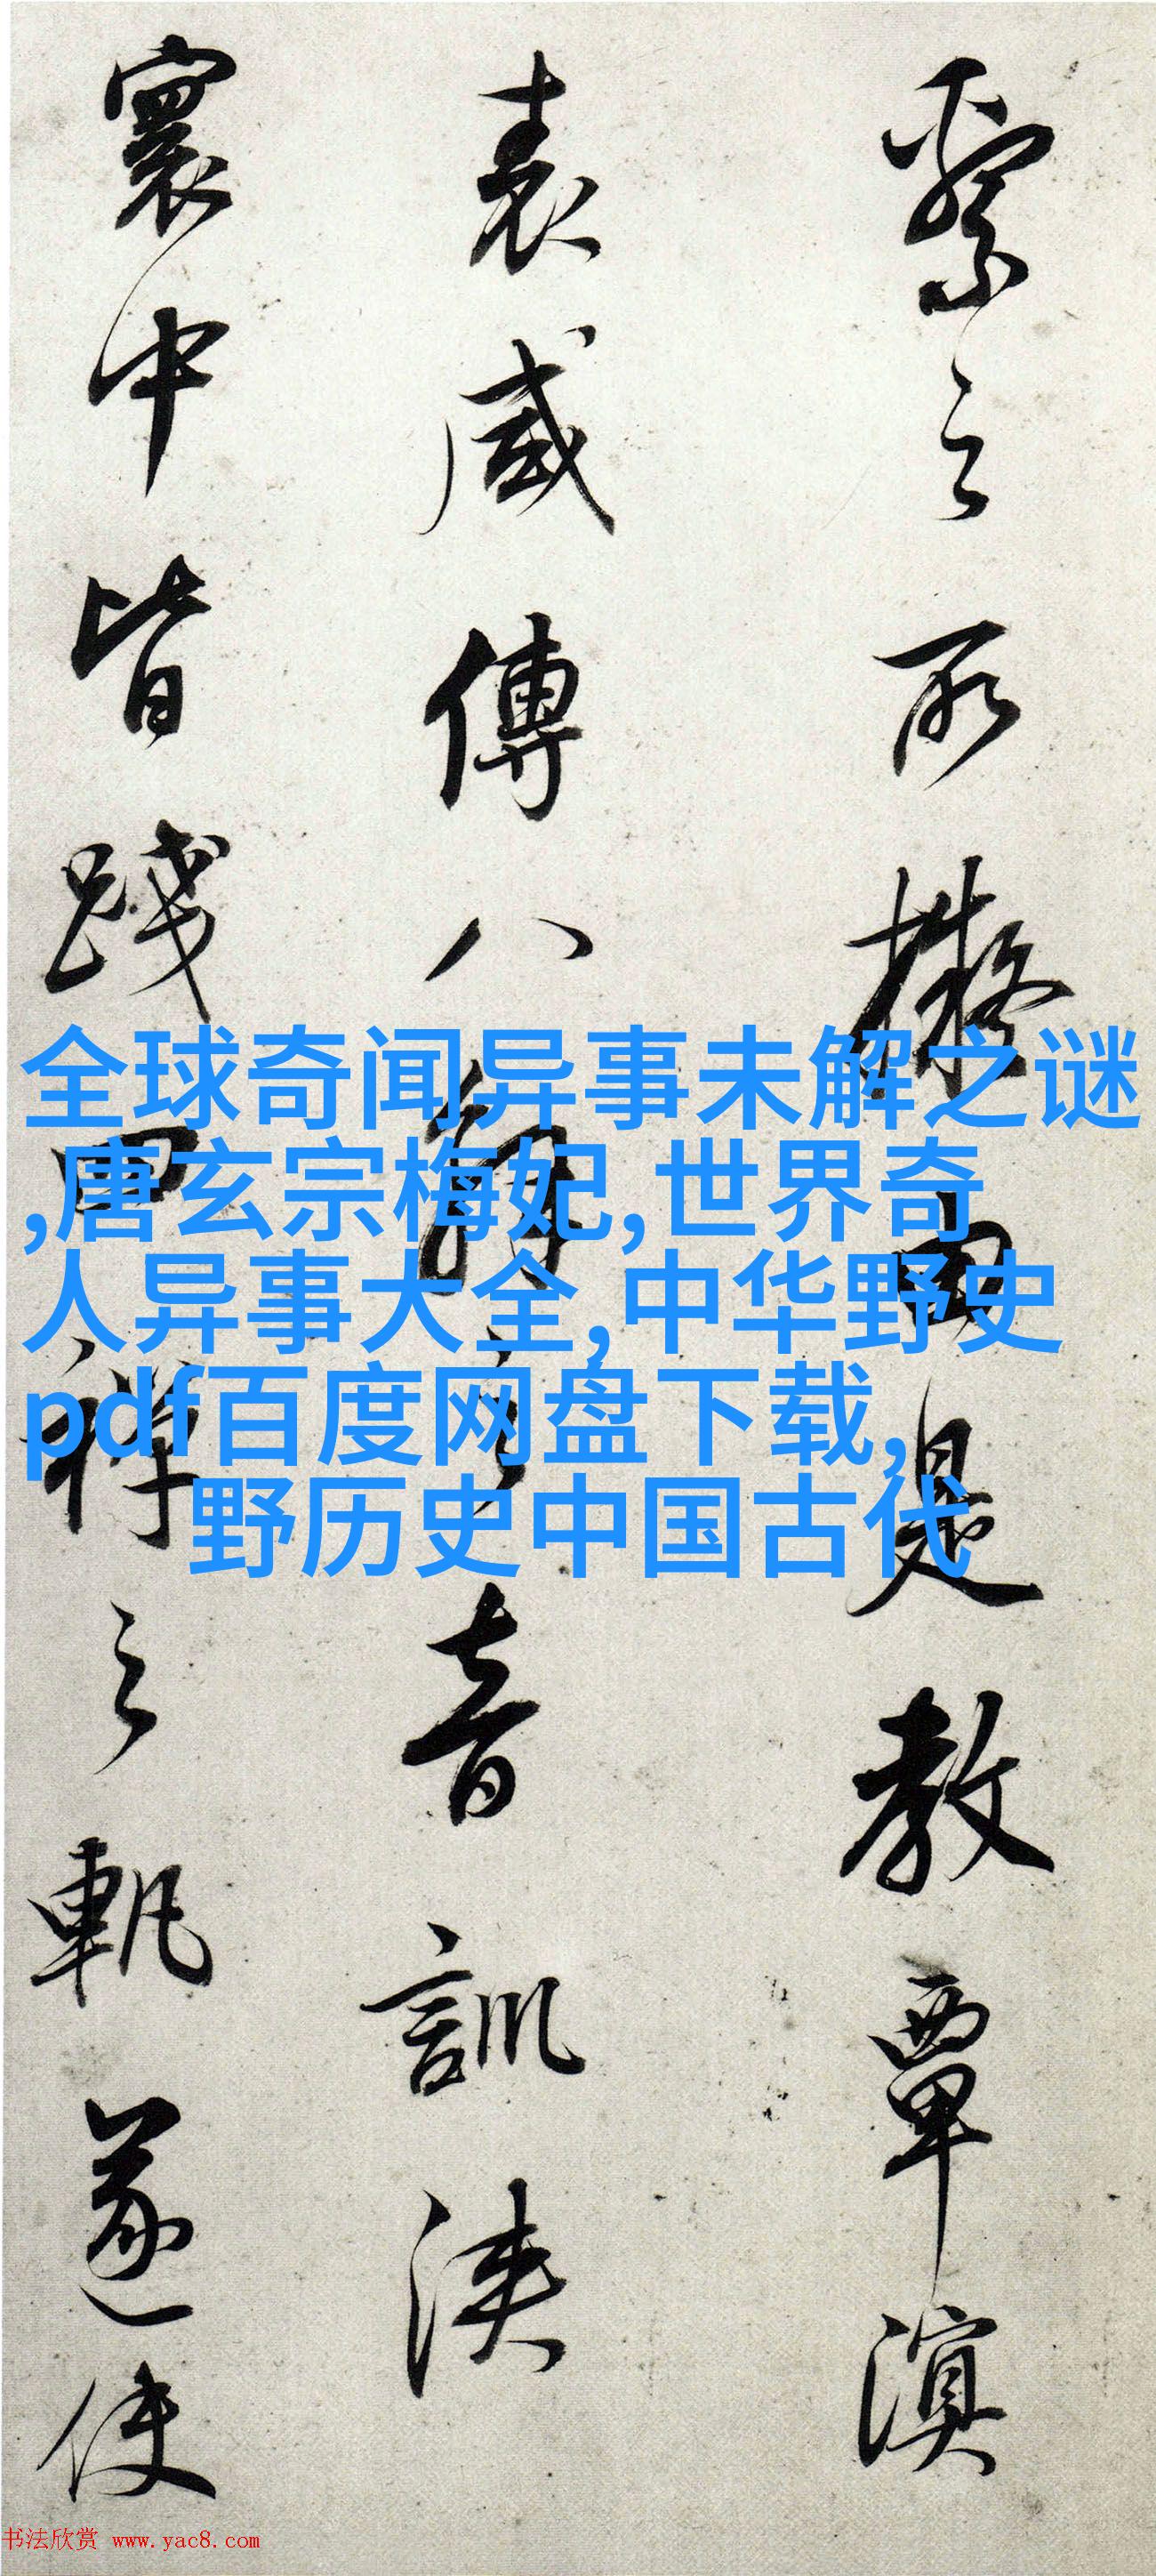 繫之所擬由是教覃溟
表咸傳八解之音訓浹
寰中皆踐四禪之軌遂使
全球奇闻异事未解之谜
,唐玄宗梅妃,世界奇
人异事大全,中华野史
pdf百度网盘下载,
野历史中国古代
书法欣赏 www.yac8.com